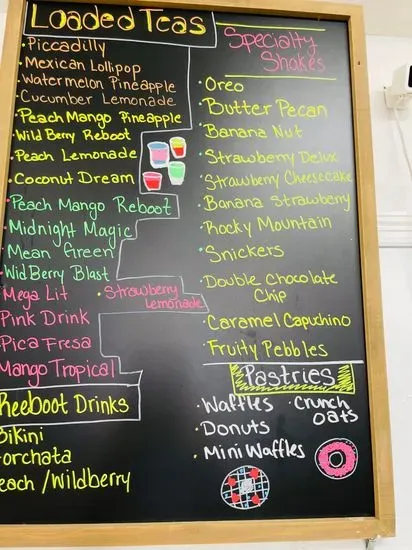 Loaded Teas
Piccadilly
Mexican Lollipop
Watermelon Pineapple
Cucumber Lemonade
Peach Mango Pineapple
Wild Berry Reboot
Peach Lemonade
Coconut Dream
Peach Mango Reboot
Midnight Magic
Mean Green
Wild Berry Blast
Mega Lit
Strawberry Lemonade
Pink Drink
Pica Fresa
Mango Tropical
Reeboot Drinks
Bikini
orchata
each / Wildberry
Specialty
Shakes
Oreo
Butter Pecan
Banana Nut
Strawberry Delux
Strawberry Cheesecake
Banana Strawberry
Rocky Mountain
Snickers
Double Chocolate
Chip
Caramel Capuchino
Fruity Pebbles
Pastries
Waffles
Crunch
Oats
Donuts
Mini Waffles